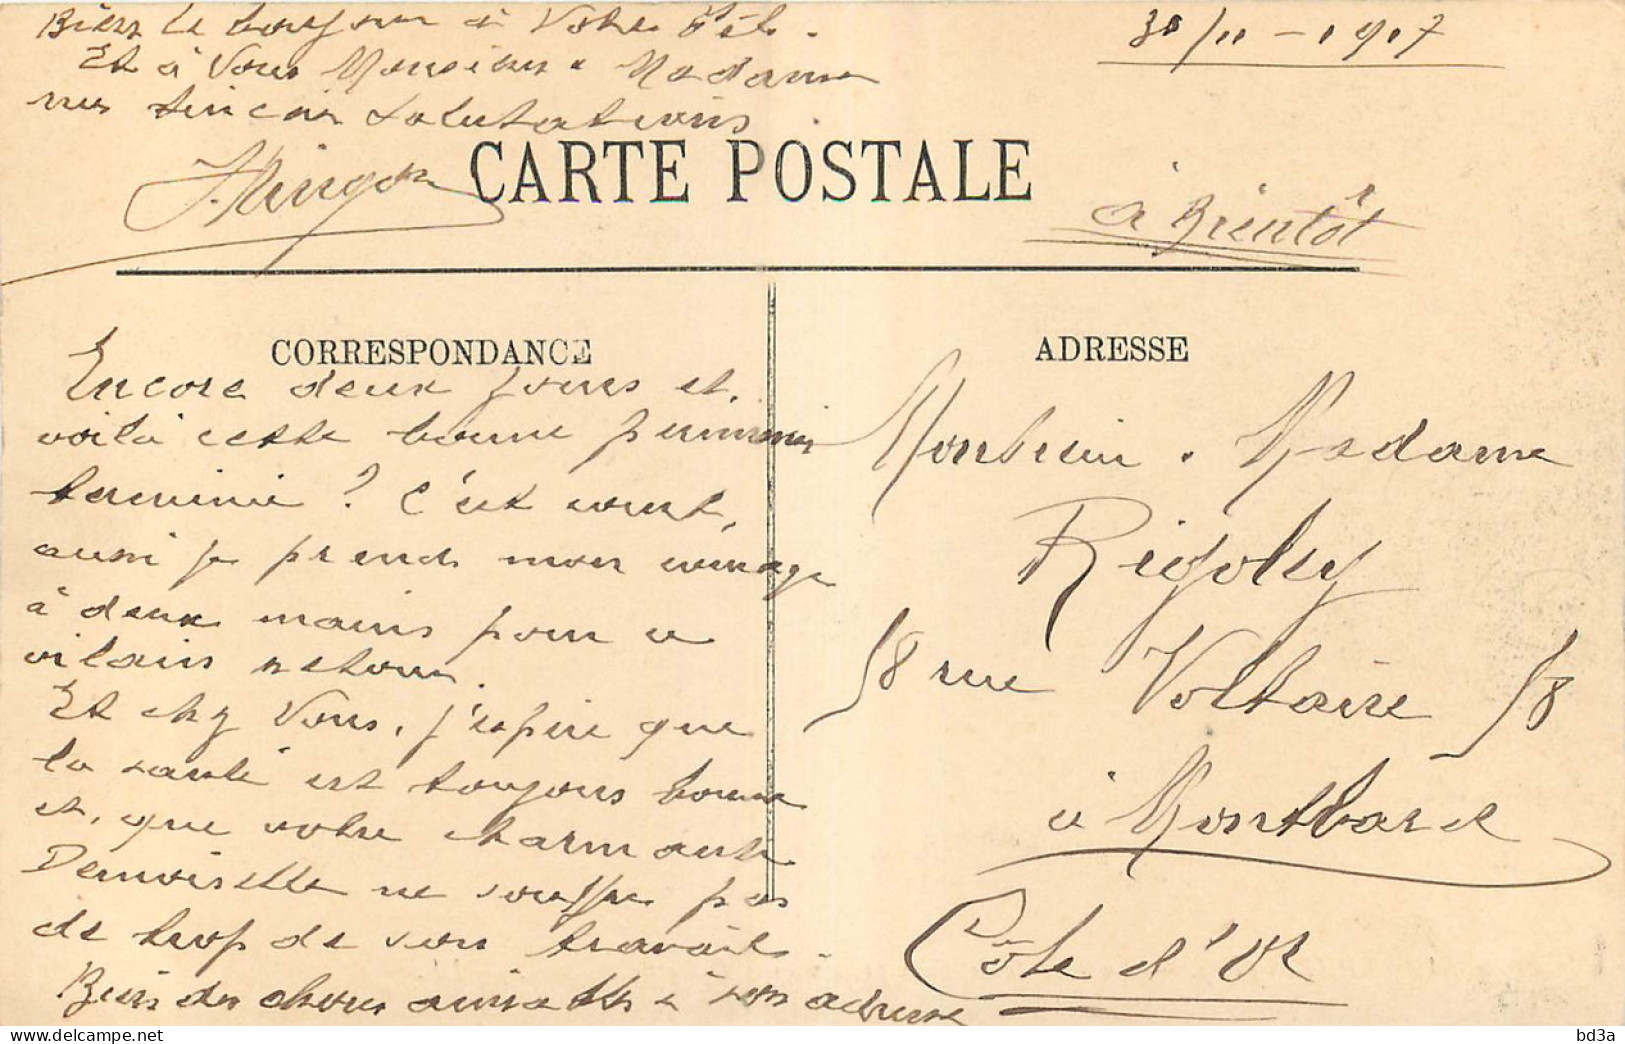 Bien le bonjour à Votre
Et à Vous Monsieur & Madame
nos sincères salutations
30/11 - 1917
CARTE POSTALE
à Bientôt
CORRESPONDANCE
Encore deux jours et,
voilà cette bonne permission
terminée ? C'est court,
aussi je prends mon courage
à deux mains pour ce
vilain retour.
Et chez Vous, j'espère que
la santé est toujours bonne
et, que votre charmante
Demoiselle ne souffre pas
de trop de son travail.
Bien des choses aimables à son adresse
ADRESSE
Monsieur & Madame
Rigoley
58 rue Voltaire 58
à Montbard
Côte d'Or
bd3a